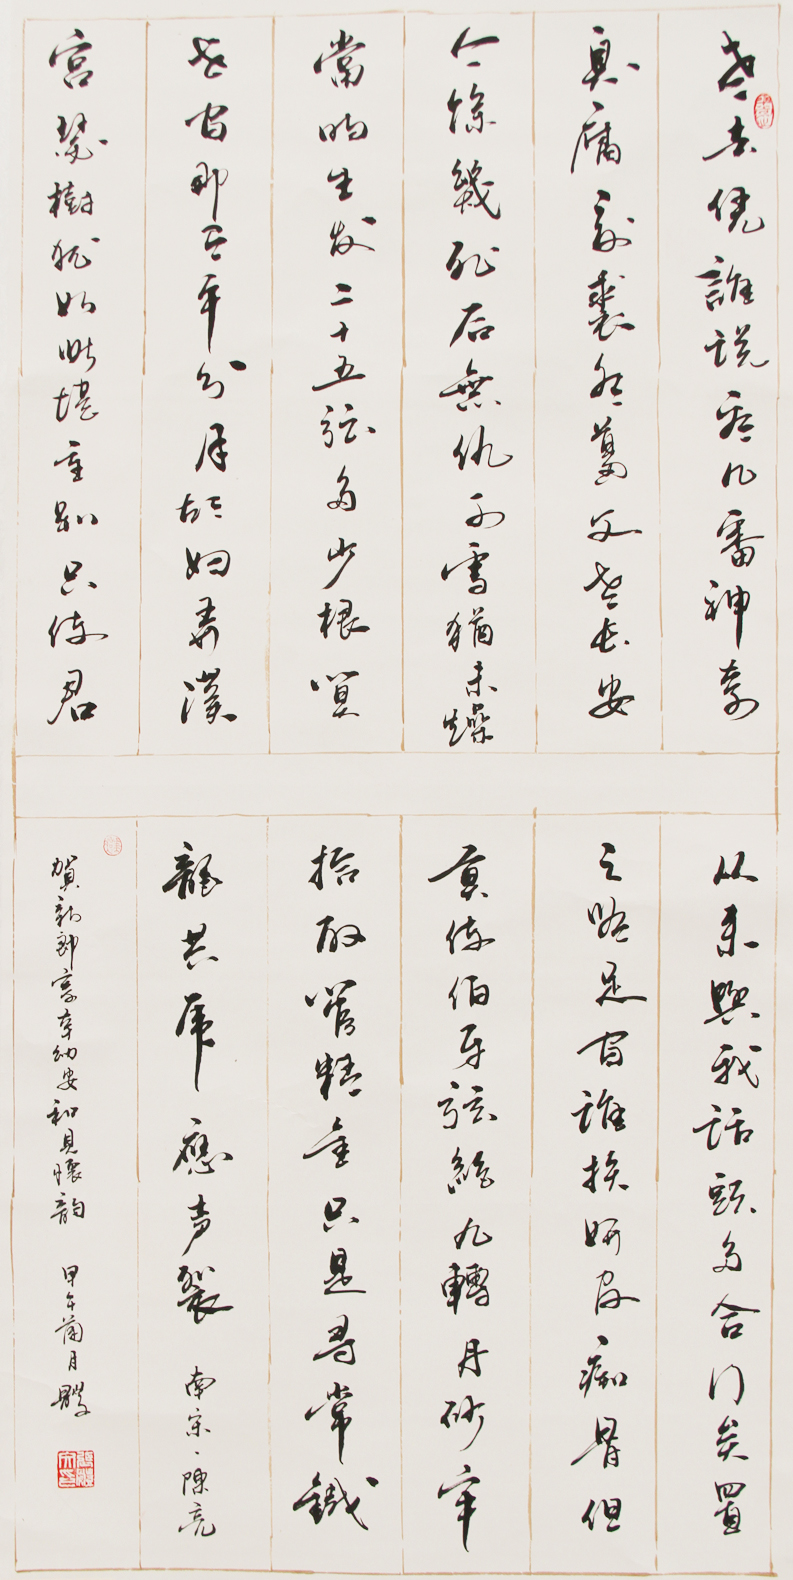 老去凭誰说看几番神奇
臭腐夏裘冬葛父老長安
今餘幾死后無仇可雪猶未燥
當時生发二十五弦多少恨算
世间那有平分月胡妇弄漢
宫瑟樹犹如斯堪重别只使君
从来與我話頭多合行矣置
之無足问誰换妍皮痴骨但
莫使伯牙弦絶九轉丹砂牢
拾取管精金只是尋常鐵
龍共虎應声裂 南宋、陳亮
賀新郎寄辛幼安和見懷韵 甲午蒲月